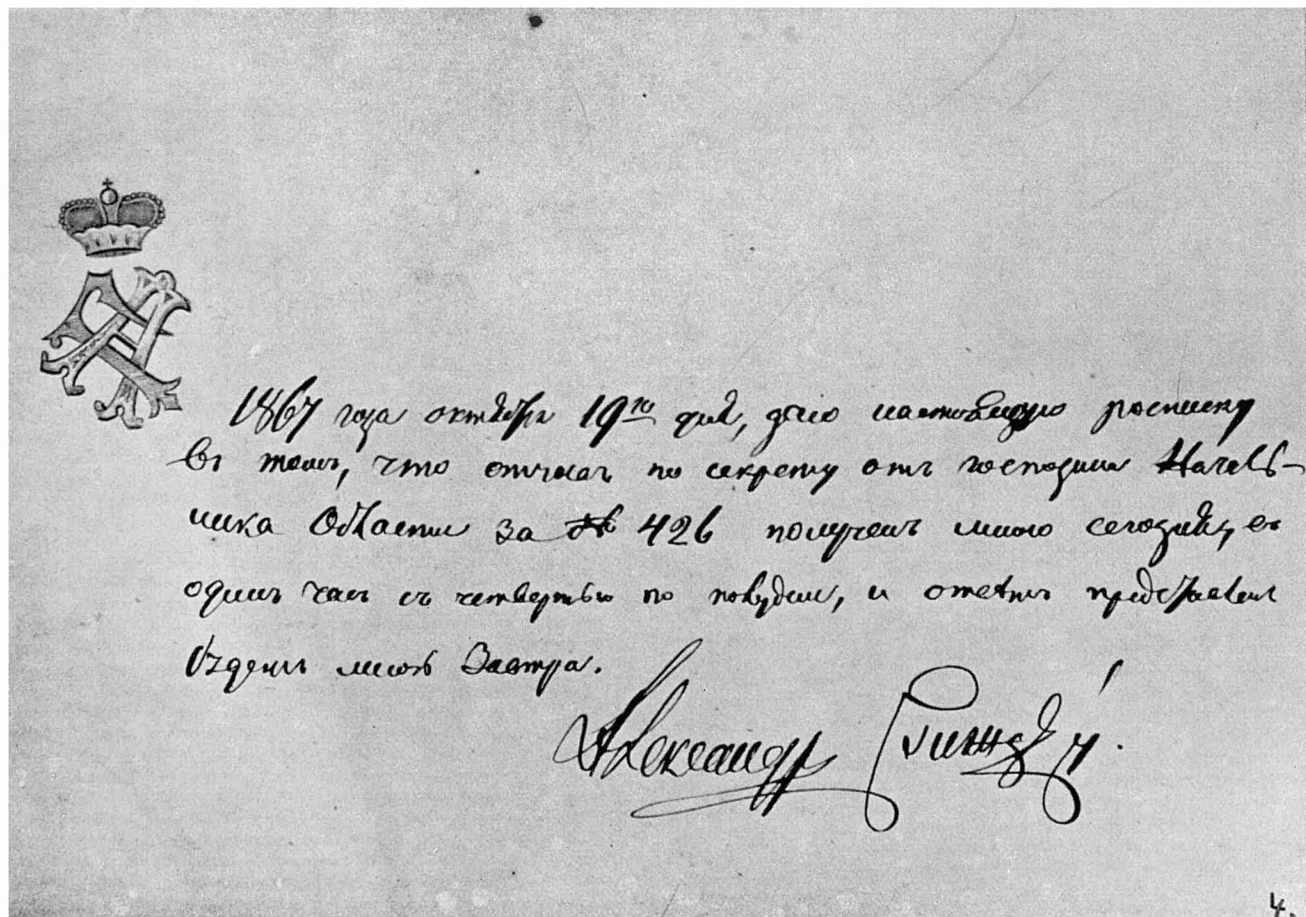 1867 года октября 19го дня, даю настоящую росписку
въ томъ, что отписка по секрету отъ господина Началь-
ника Области за № 426 получена мною сегодня, въ
одинъ часъ съ четвертью по полудни, и отвѣтъ представленъ
будетъ мною завтра.
Александръ
4.